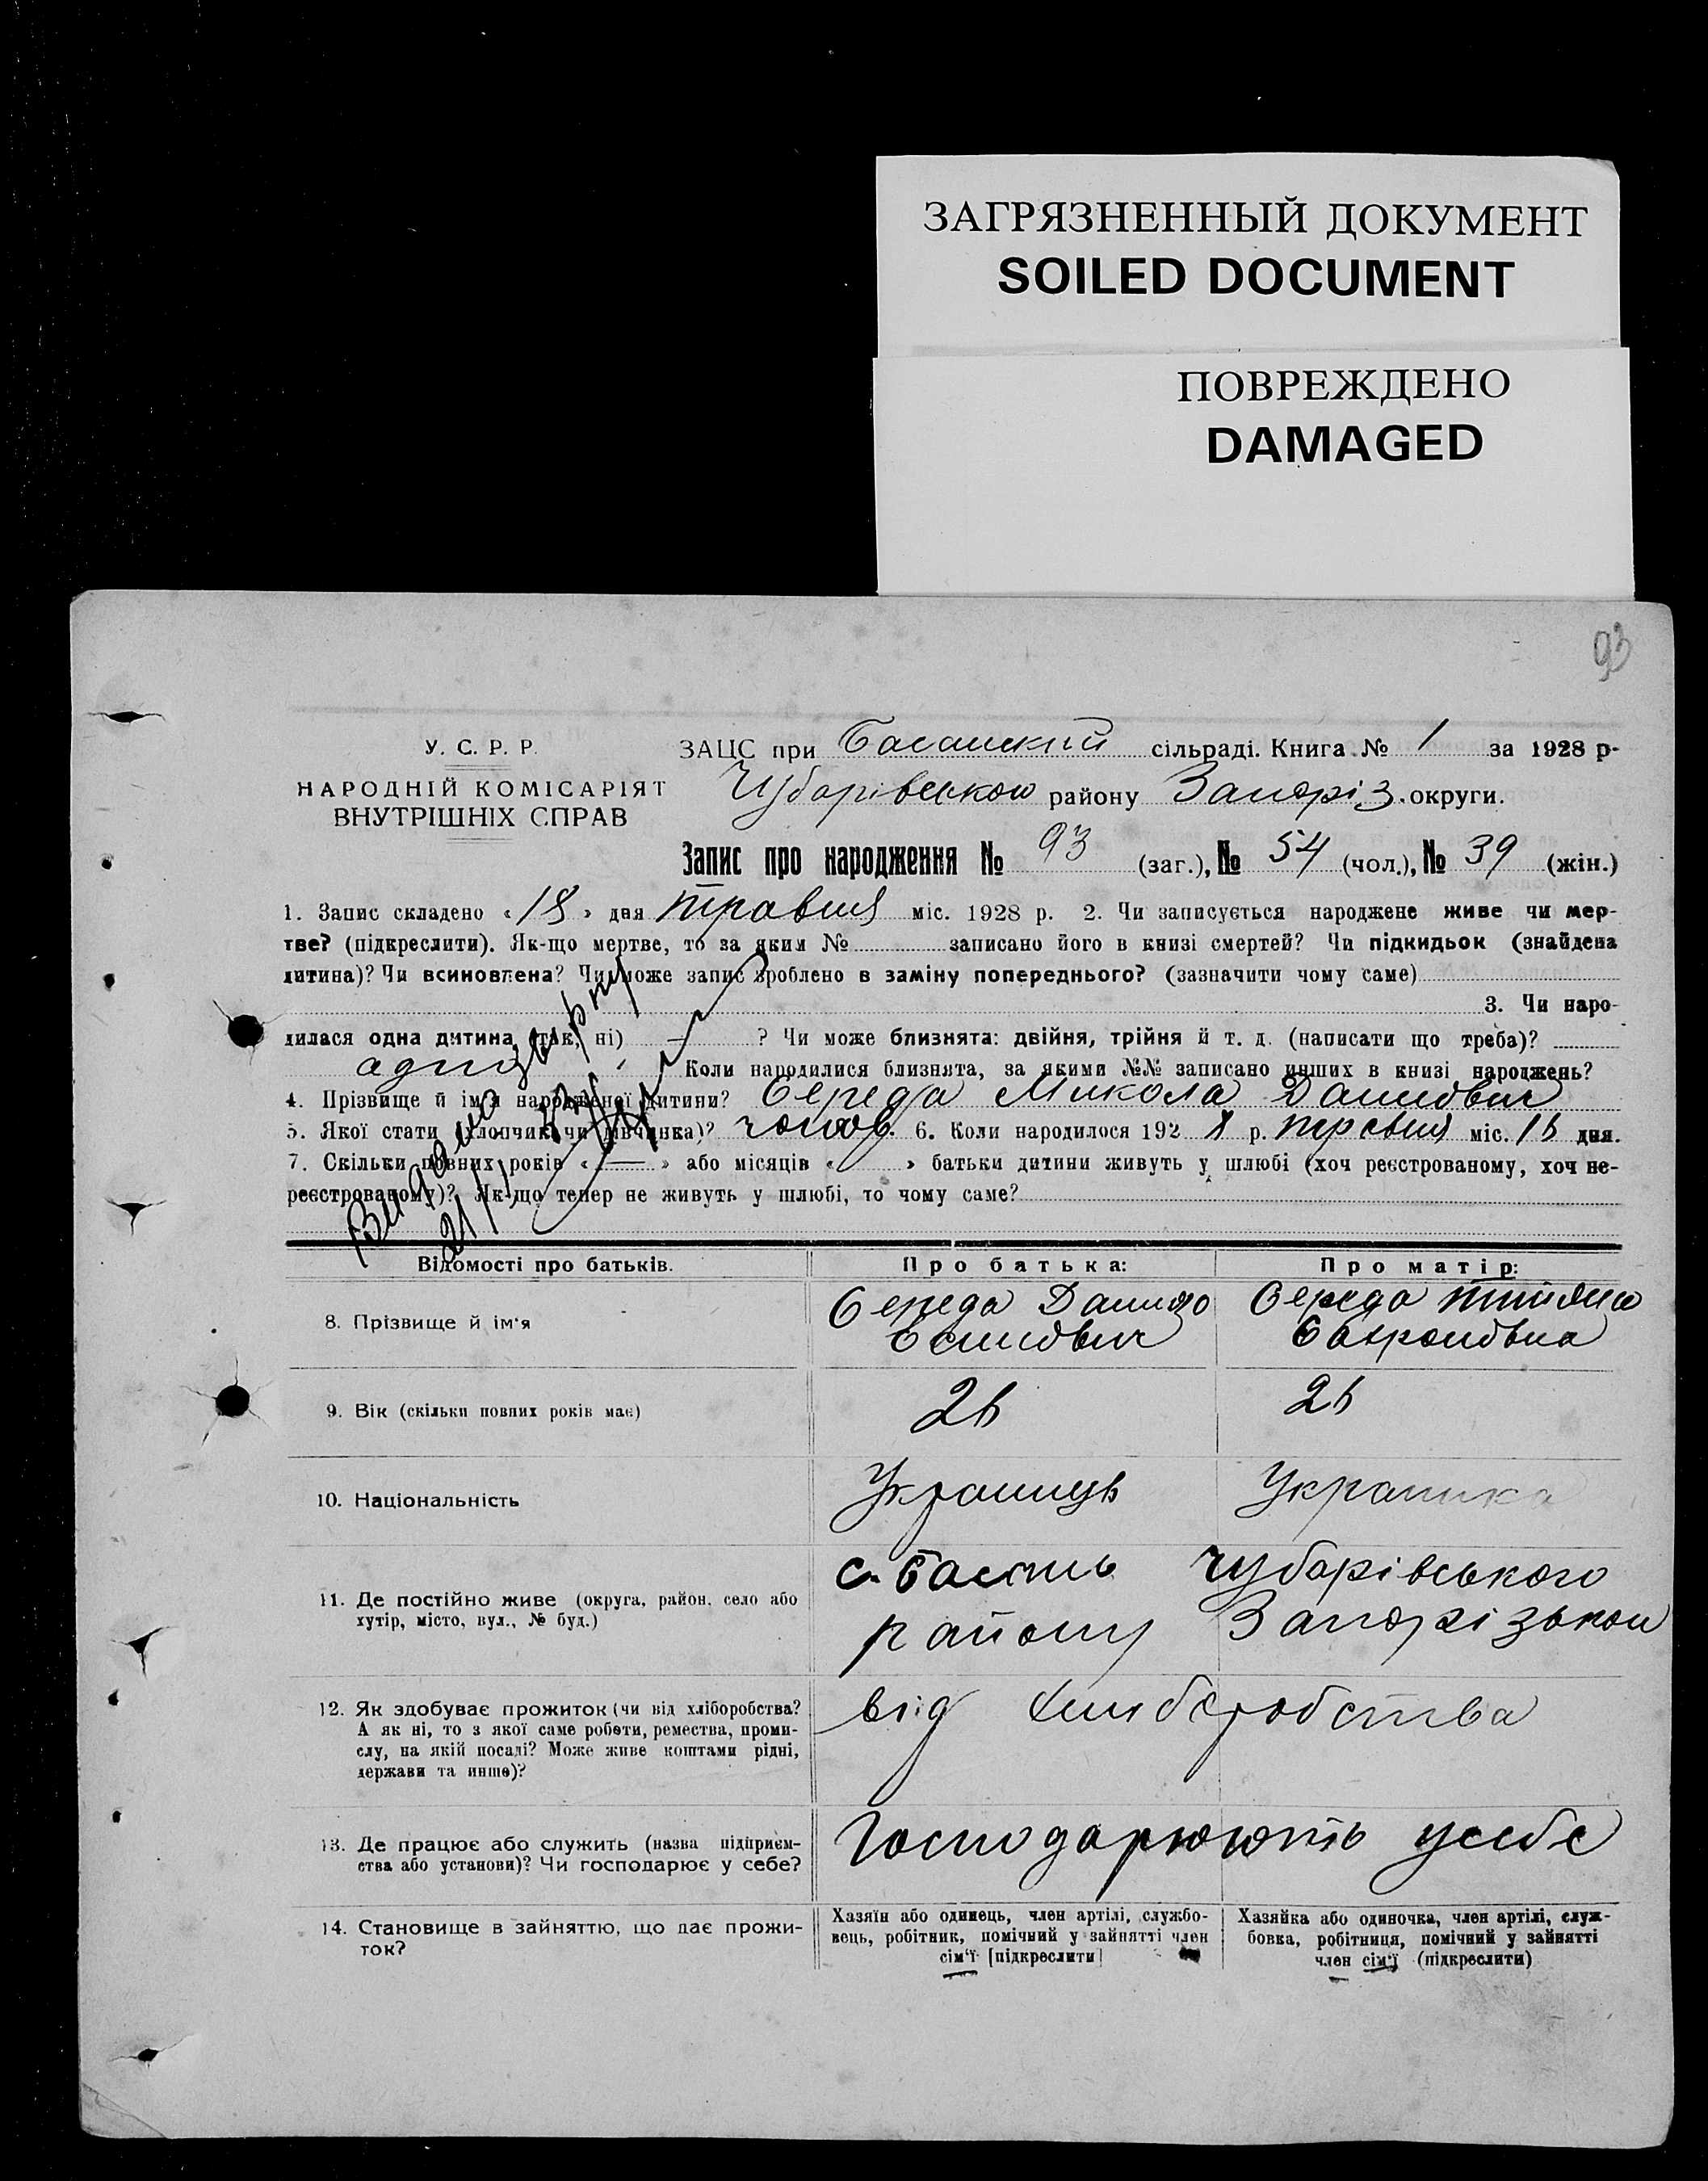 ЗАГРЯЗНЕННЫЙ ДОКУМЕНТ
SOILED DOCUMENT
ПОВРЕЖДЕНО
DAMAGED
93
У. С. Р. Р.
НАРОДНІЙ КОМІСАРІЯТ
ВНУТРІШНІХ СПРАВ
ЗАЦС при Басанский сільраді. Книга № 1 за 1928 р-
Чубарівською району Запоріз. округи.
Запис про народження № 93 (заг.), № 54 (чол.), № 39 (жін.)
1. Запис складено «18» дня травня міс. 1928 р. 2. Чи записується народжене живе чи мер-
тве? (підкреслити). Як-що мертве, то за яким № записано його в книзі смертей? Чи підкидьок (знайдена
дитина)? Чи всиновлена? Чи може запис зроблено в заміну попереднього? (зазначити чому саме)
3. Чи наро-
дилася одна дитина (так, ні) — ? Чи може близнята: двійня, трійня й т. д. (написати що треба)?
Коли народилися близнята, за якими №№ записано инших в книзі народжень?
4. Прізвище й ім'я народженої дитини? Середа Микола Данилович
5. Якої стати (хлопчик чи дівчинка)? чолов. 6. Коли народилося 1928 р. травня міс. 16 дня.
7. Скільки повних років «—» або місяців « » батьки дитини живуть у шлюбі (хоч реєстрованому, хоч не-
реєстрованому)? Як-що тепер не живуть у шлюбі, то чому саме?
Видано
Відомості про батьків.
Про батька:
Про матір:
8. Прізвище й ім'я
Середа Данило
Середа
9. Вік (скільки повних років має)
26
26
10. Національність
Українць
Украинка
11. Де постійно живе (округа, район, село або
хутір, місто, вул., № буд.)
с. Басань Чубарівського
району Запорізької
12. Як здобуває прожиток (чи від хліборобства?
А як ні, то з якої саме роботи, ремества, проми-
слу, на якій посаді? Може живе коштами рідні,
держави та инше)?
від хлиборобства
13. Де працює або служить (назва підприєм-
ства або установи)? Чи господарює у себе?
Господарюють усебе
14. Становище в зайняттю, що дає прожи-
ток?
Хазяїн або одинець, член артілі, службо-
вець, робітник, помічний у зайнятті член
сім'ї [підкреслити]
Хазяйка або одиночка, член артілі, служ-
бовка, робітниця, помічний у зайнятті
член сім'ї (підкреслити)